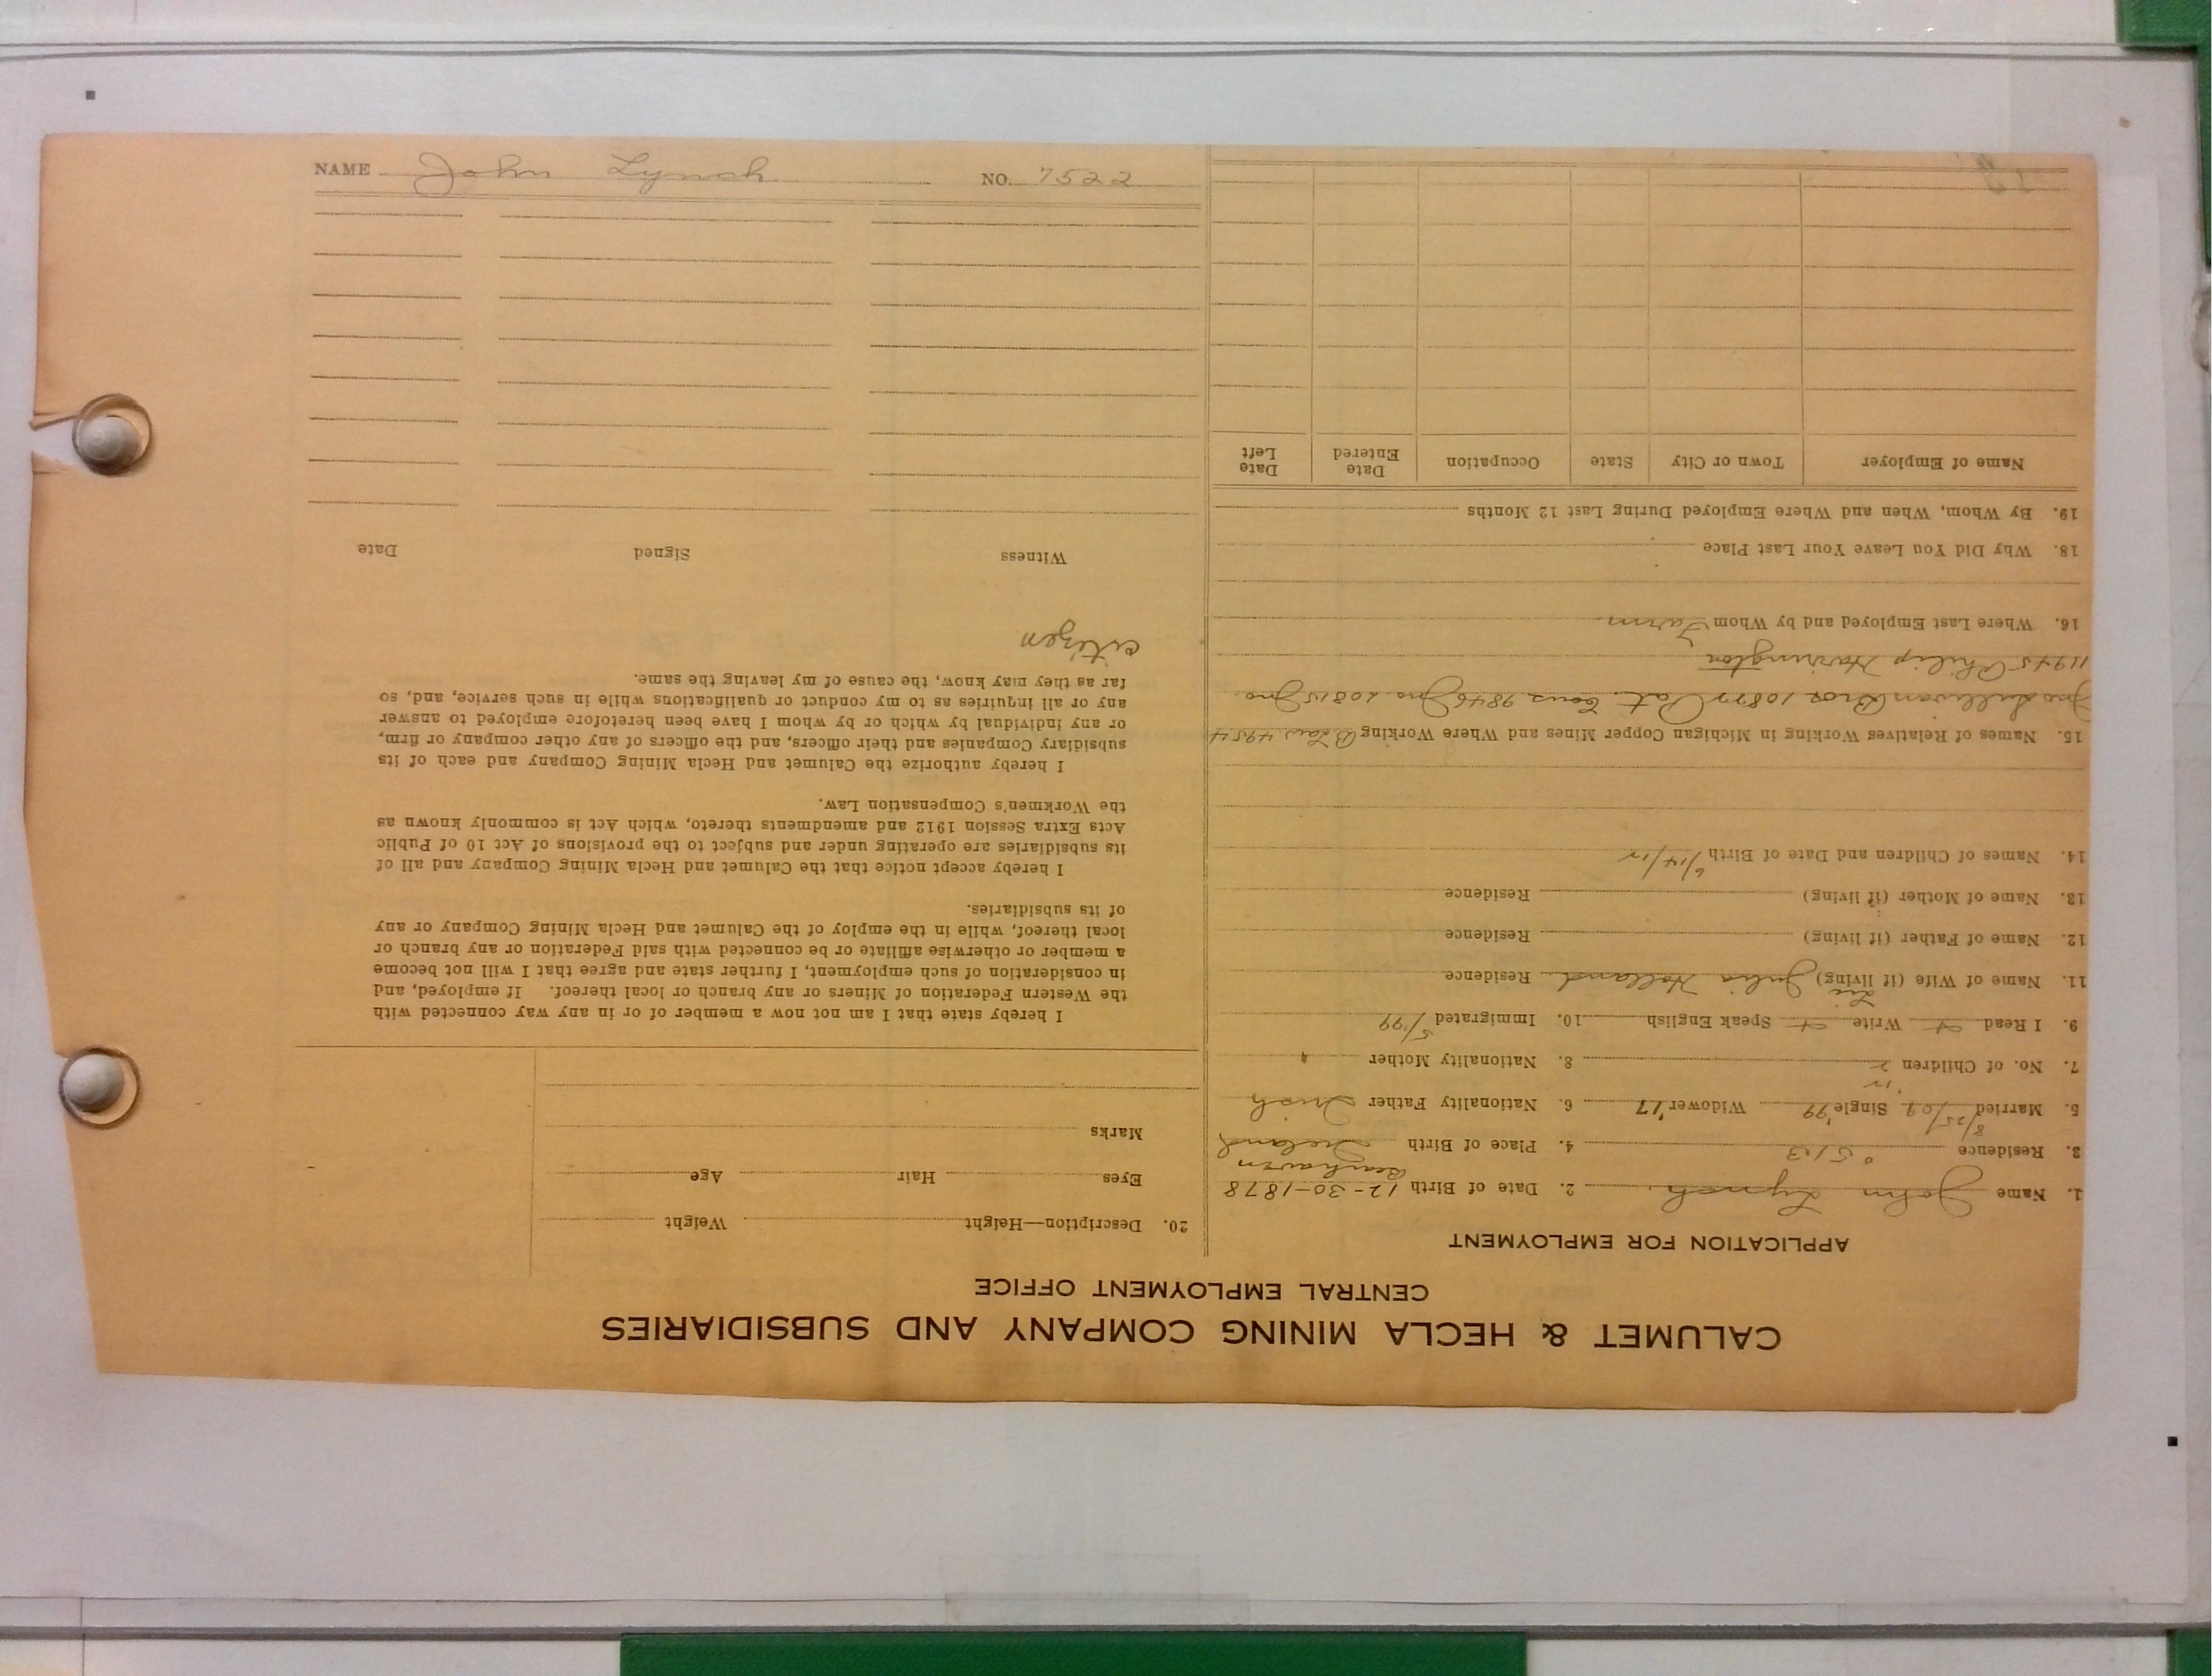 CALUMET & HECLA MINING COMPANY AND SUBSIDIARIES
CENTRAL EMPLOYMENT OFFICE
APPLICATION FOR EMPLOYMENT
1. Name John Lynch. 2. Date of Birth 12-30-1878
Bearhaven
3. Residence 4. Place of Birth Ireland
8/25/09 '99 '17
5. Married Single Widower 6. Nationality Father Irish
7. No. of Children 2 8. Nationality Mother "
9. I Read Write Speak English 10. Immigrated 5/99
11. Name of Wife (if living) Julia Holland Residence
12. Name of Father (if living) Residence
13. Name of Mother (if living) Residence
14. Names of Children and Date of Birth 6/14/12
15. Names of Relatives Working in Michigan Copper Mines and Where Working B Law 4954
Jno Sullivan Bros 10877 Pat. Cous 9846 Jno. 10815 Jno.
11945 Philip Harrington
16. Where Last Employed and by Whom Farm
18. Why Did You Leave Your Last Place
19. By Whom, When and Where Employed During Last 12 Months
Name of Employer Town or City State Occupation Date Entered Date Left
20. Description—Height Weight
Eyes Hair Age
Marks
I hereby state that I am not now a member of or in any way connected with
the Western Federation of Miners or any branch or local thereof. If employed, and
in consideration of such employment, I further state and agree that I will not become
a member or otherwise affiliate or be connected with said Federation or any branch or
local thereof, while in the employ of the Calumet and Hecla Mining Company or any
of its subsidiaries.
I hereby accept notice that the Calumet and Hecla Mining Company and all of
its subsidiaries are operating under and subject to the provisions of Act 10 of Public
Acts Extra Session 1912 and amendments thereto, which Act is commonly known as
the Workmen's Compensation Law.
I hereby authorize the Calumet and Hecla Mining Company and each of its
subsidiary Companies and their officers, and the officers of any other company or firm,
or any individual by which or by whom I have been heretofore employed to answer
any or all inquiries as to my conduct or qualifications while in such service, and, so
far as they may know, the cause of my leaving the same.
citizen
Witness Signed Date
NAME John Lynch NO. 7522